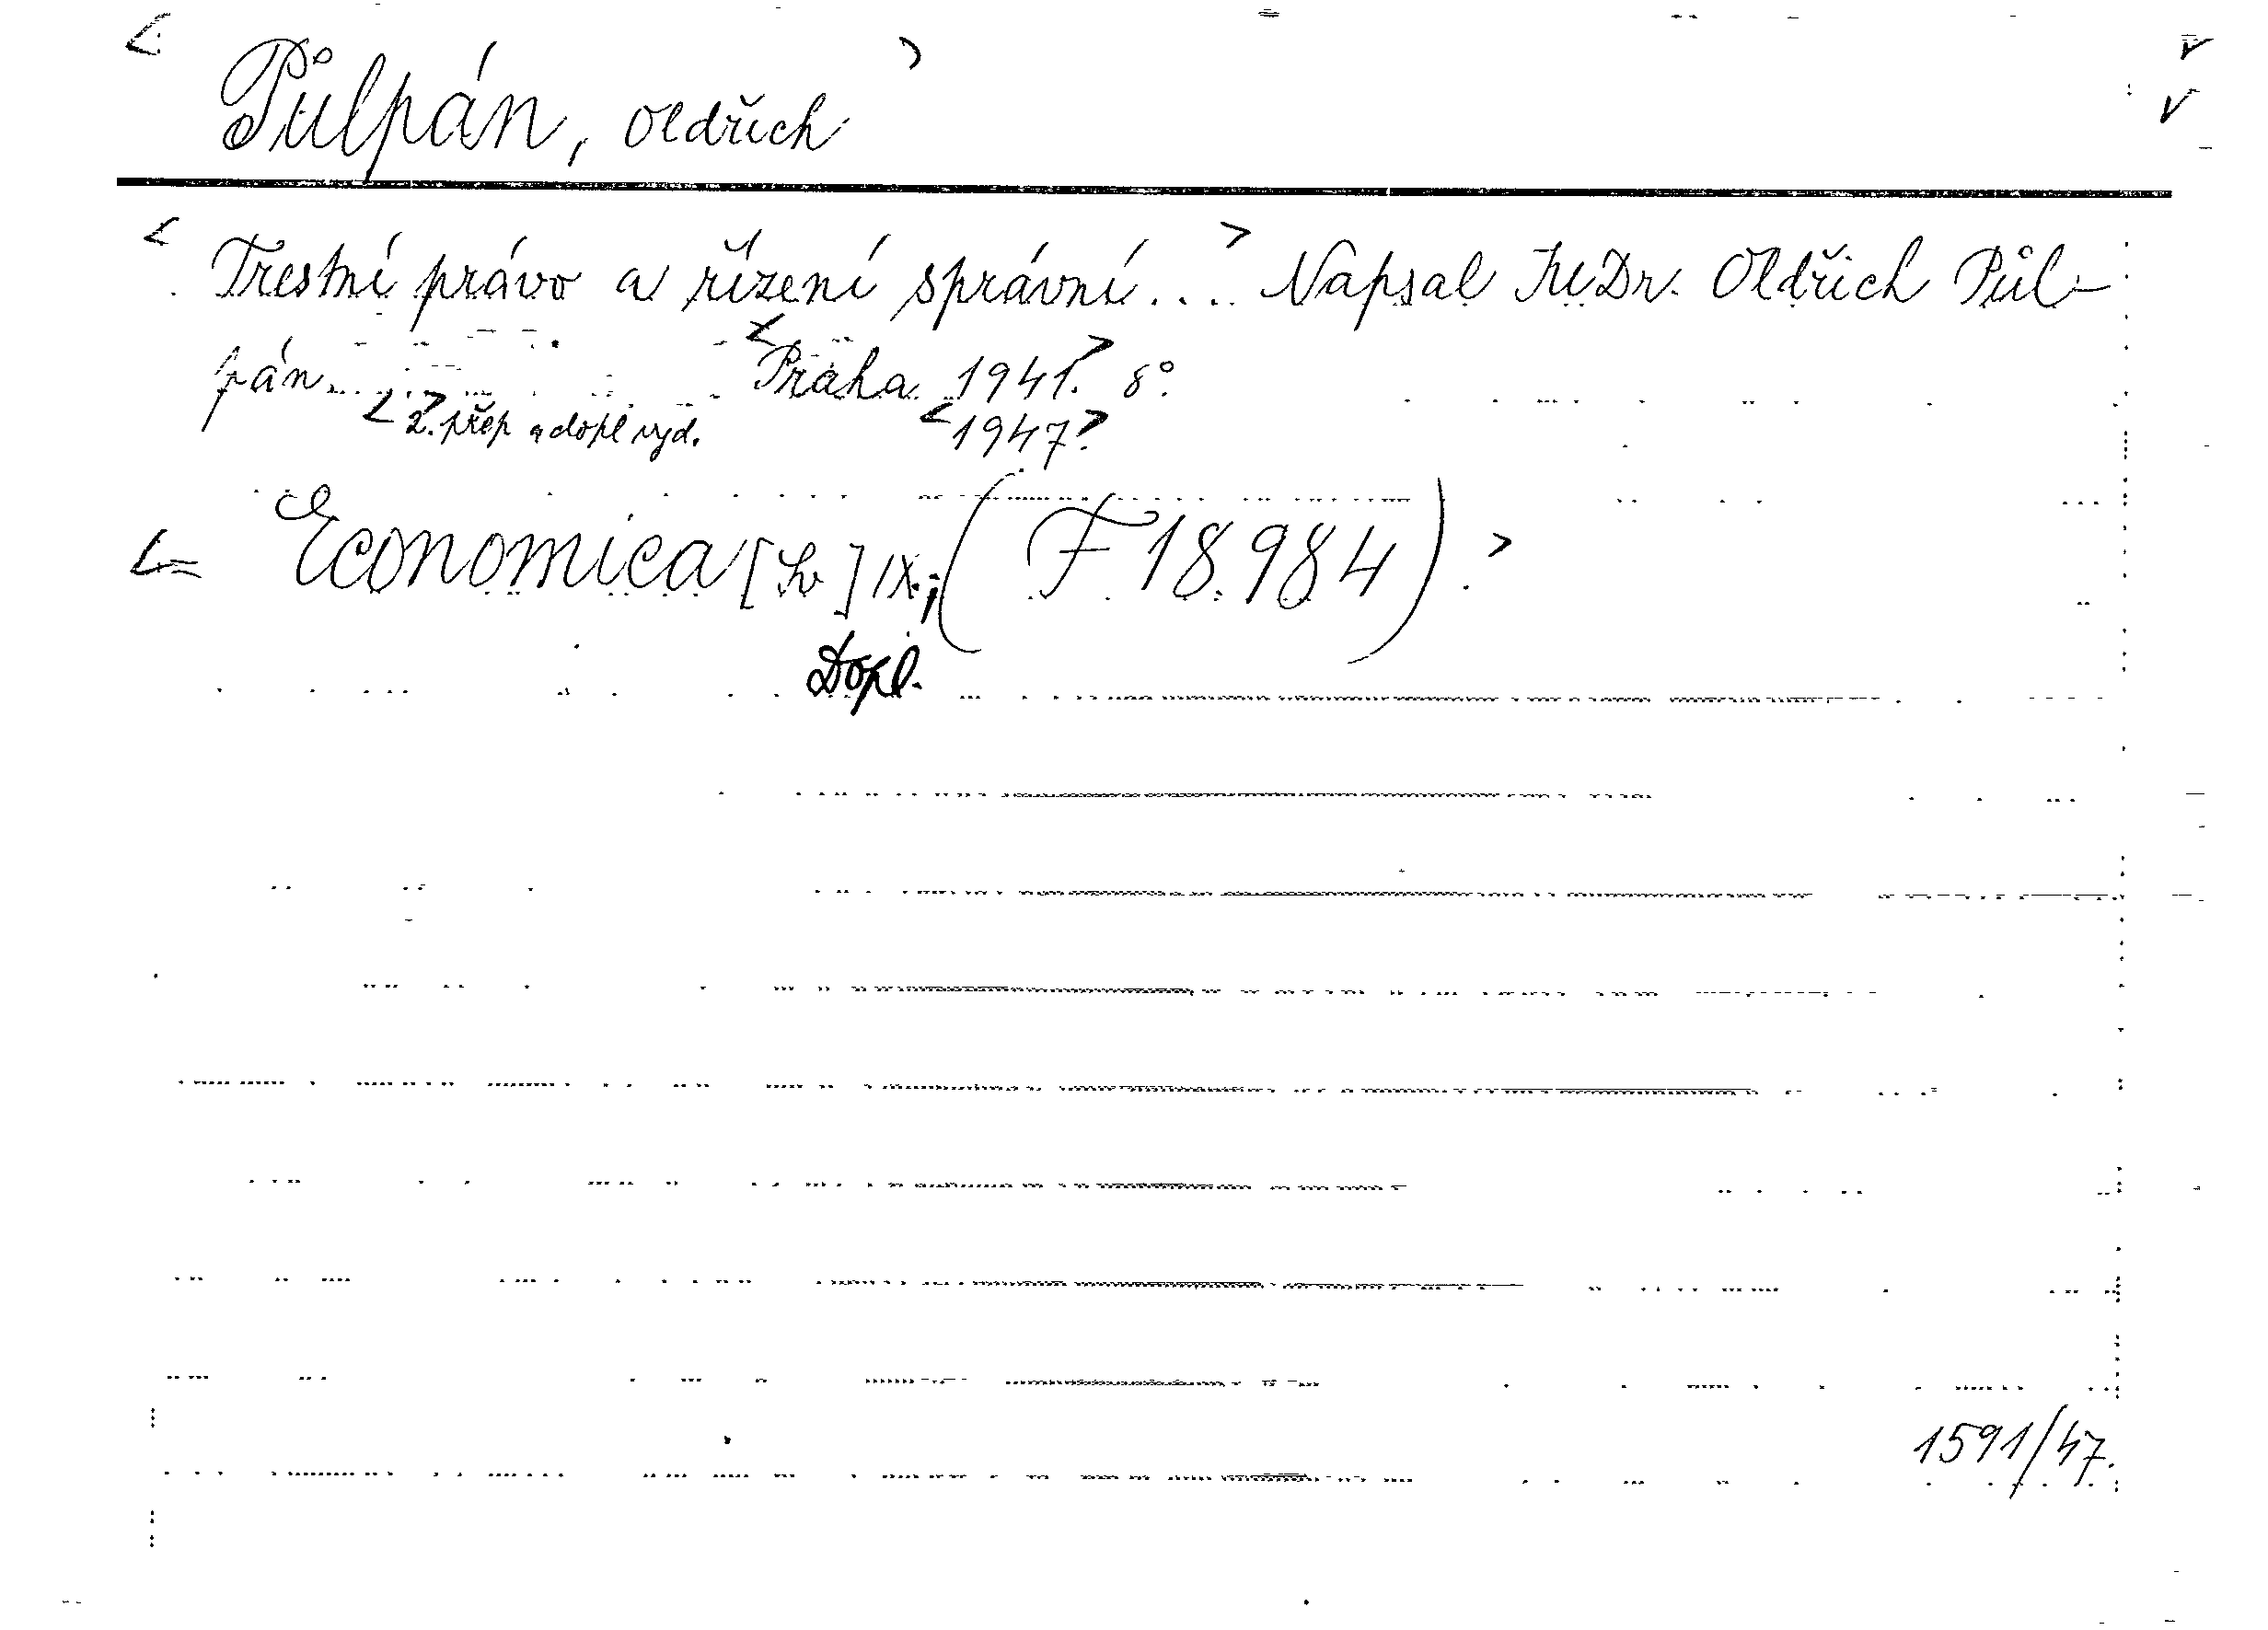 < Půlpán, Oldřich >
< Trestní právo a řízení správní.... > Napsal JUDr. Oldřich Půl-
pán... <Praha 1941.> 8°.
< 2. > přep a dopl vyd. <1947>
<= Economica [Sv] IX.; (F 18.984). >
Dopl.
1591/47.